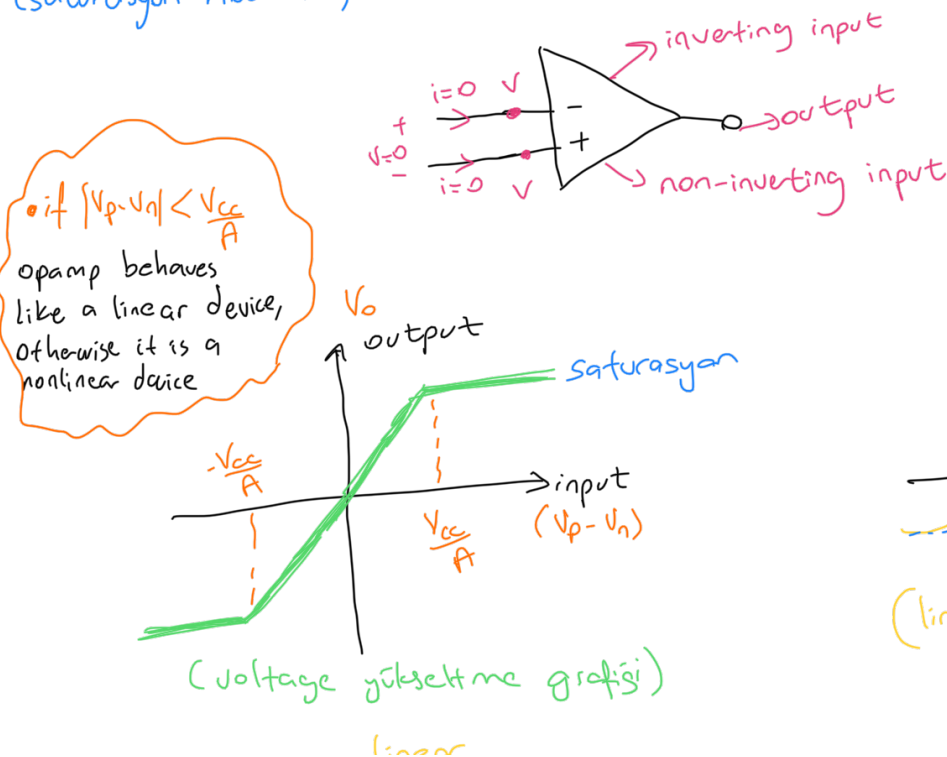 inverting input
i=0 V
-
+
output
V=0
+
-
i=0 V
non-inverting input
•if |Vp-Vn| < Vcc/A
opamp behaves
like a linear device,
otherwise it is a
nonlinear davice
Vo
output
saturasyon
-Vcc/A
input
Vcc/A
(Vp-Vn)
(voltage yükseltme grafiği)
linear